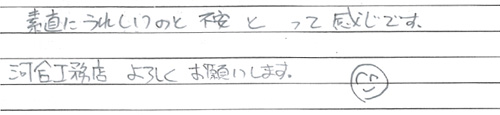 素直にうれしいのと 不安と って感じです.
河合工務店 よろしくお願いします.